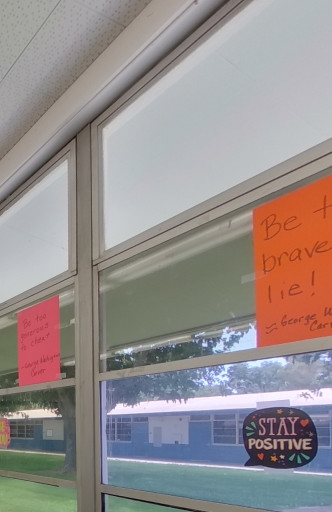 Be too
generous
to cheat
George Washington
Carver
Be t
brave
lie!
George W
Car
STAY
POSITIVE